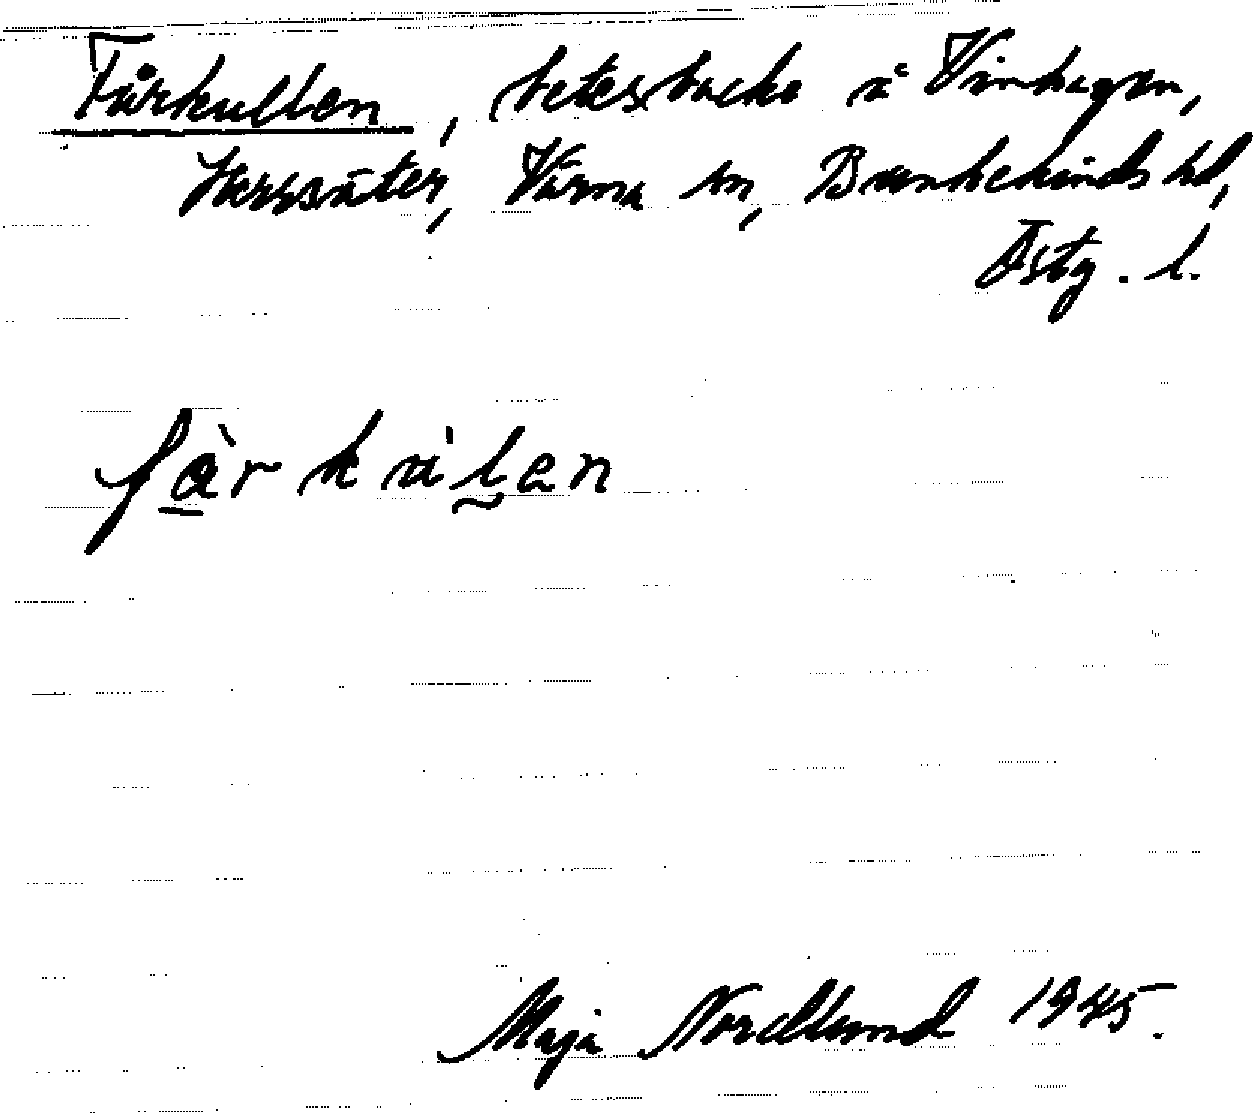 Fårkullen, betesbacke å Vinhagen,
Harrsäter, Värna sn, Bankekinds hd,
Östg. l.
fàr kùlen
Maja Nordlund 1945.